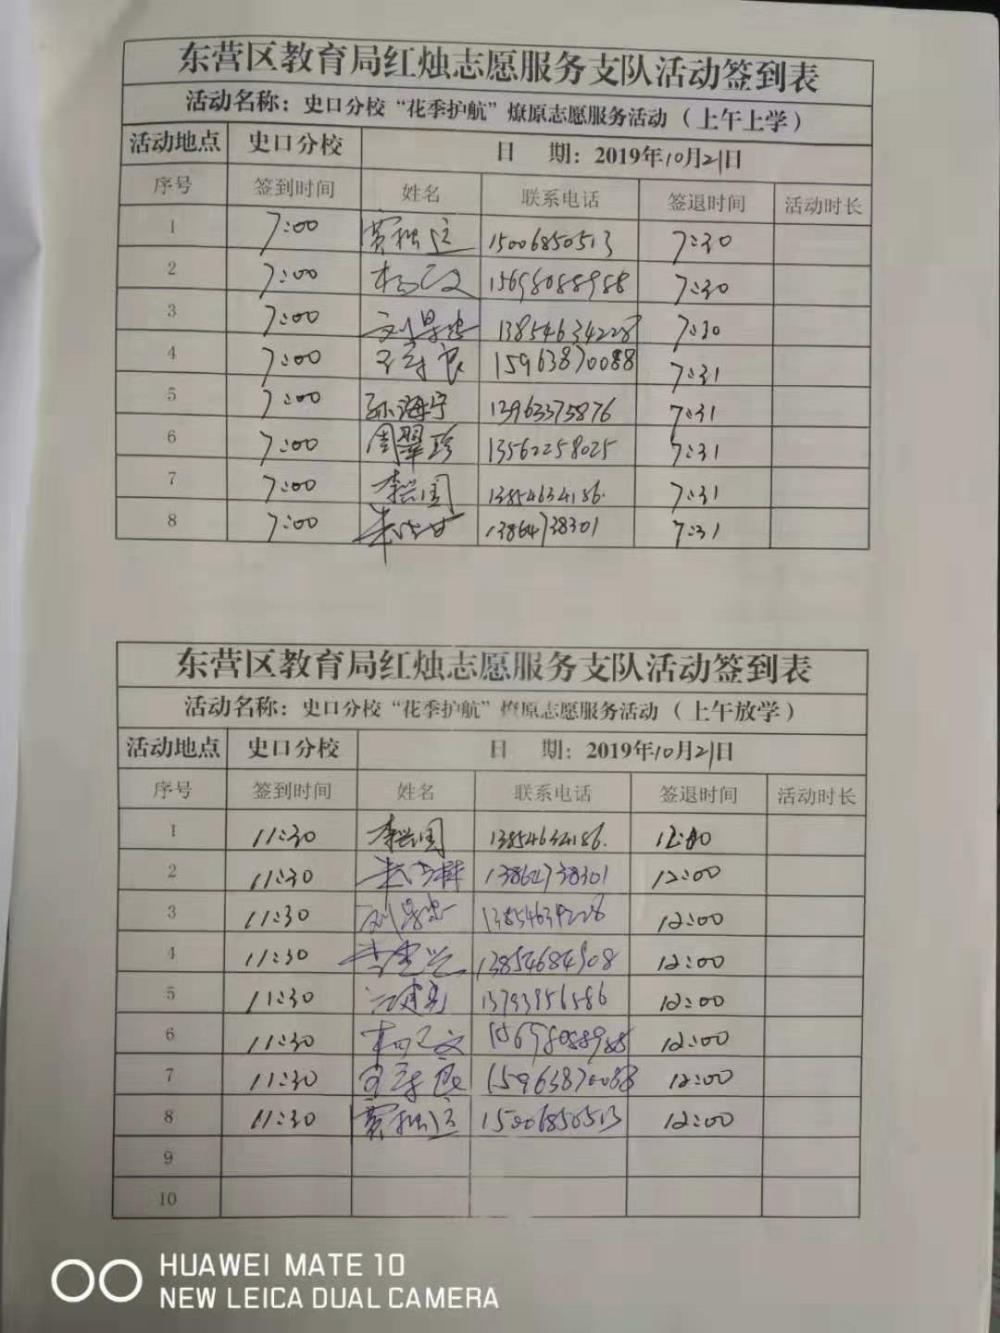 东营区教育局红烛志愿服务支队活动签到表
活动名称：史口分校“花季护航”燎原志愿服务活动（上午上学）
活动地点 史口分校 日 期：2019年10月21日
序号 签到时间 姓名 联系电话 签退时间 活动时长
1 7:00 15006850513 7:30
2 7:00 15698088988 7:30
3 7:00 13854634228 7:30
4 7:00 15963870088 7:31
5 7:00 孙海宁 13963375876 7:31
6 7:00 周翠珍 13562258025 7:31
7 7:00 李兴国 13854634186. 7:31
8 7:00 13864738301 7:31
东营区教育局红烛志愿服务支队活动签到表
活动名称：史口分校“花季护航”燎原志愿服务活动（上午放学）
活动地点 史口分校 日 期：2019年10月21日
序号 签到时间 姓名 联系电话 签退时间 活动时长
1 11:30 李兴国 13854634186. 12:00
2 11:30 13864738301 12:00
3 11:30 13854634228 12:00
4 11:30 13854684508 12:00
5 11:30 13793956586 12:00
6 11:30 15698088988 12:00
7 11:30 15963870088 12:00
8 11:30 15006850513 12:00
9
10
HUAWEI MATE 10
NEW LEICA DUAL CAMERA